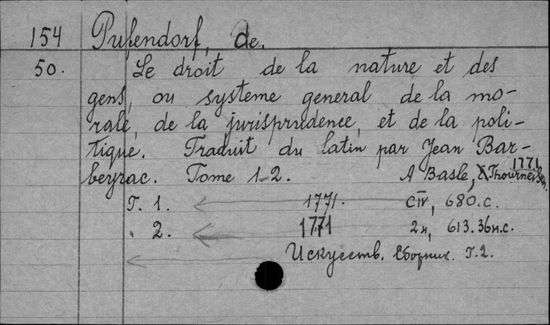 154 Pufendorf, de.
50. Le droit de la nature et des
gens, ou systeme general de la mo-
rale, de la jurisprudence, et de la poli-
tique. Traduit du latin par Jean Bar-
beyrac. Tome 1-2. A Basle, 1771.
T. 1. 1771. CIV, 680.c.
" 2. 1771 2н, 613.36н.с.
Искусств. Сборник. Т.2.